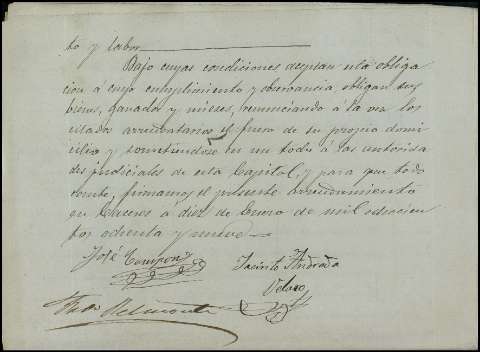 to y labor
Bajo cuyas condiciones aceptan esta obliga
cion á cuyo cumplimiento y observancia obligan sus
bienes, ganados y mieses, renunciando á la vez los
citados arrendatarios el fuero de su propio domi
cilio y sometiendose en un todo á las autorida
des judiciales de esta Capital, y para que todo
conste, firmamos el presente arrendamiento
en Caceres á diez de Enero de mil ochocien
tos ochenta y nueve
José
Jacinto Andrada